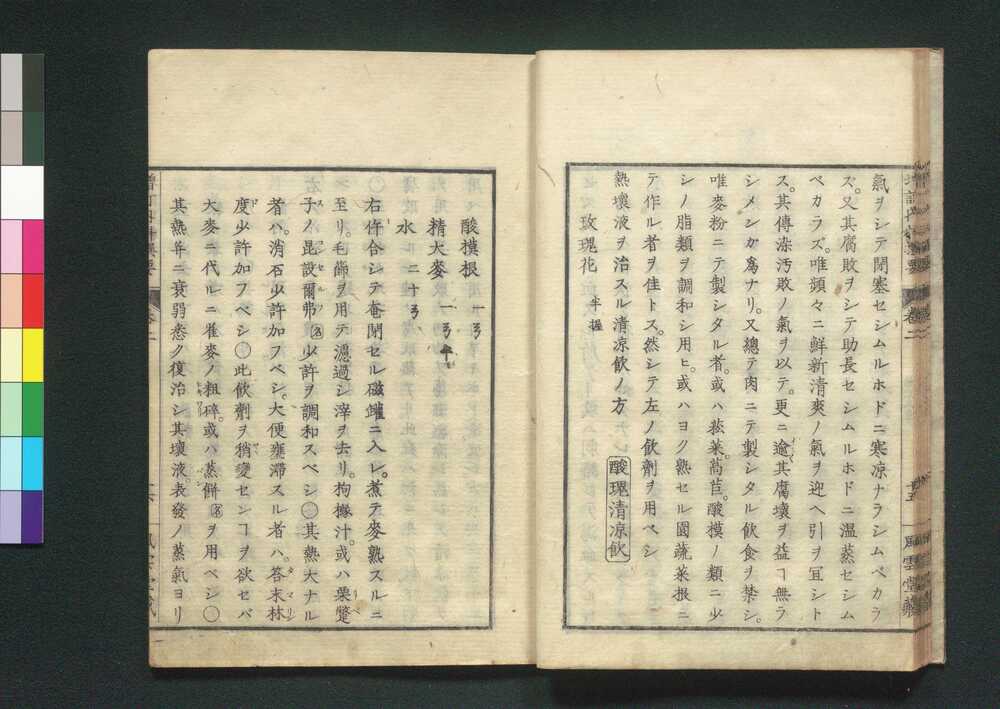 氣ヲシテ閉塞セシムルホドニ寒凉ナラシムベカラ
ズ。又其腐敗ヲシテ助長セシムルホドニ温蒸セシム
ベカラズ。唯頻々ニ鮮新清爽ノ氣ヲ迎ヘ引ヲ冝シト
ス。其傳染汚敗ノ氣ヲ以テ。更ニ逾其腐壞ヲ益ヿ無ラ
シメンガ為ナリ。又總テ肉ニテ製シタル飲食ヲ禁シ。
唯麥粉ニテ製シタル者。或ハ菘菜。萵苣。酸模ノ類ニ少
シノ脂類ヲ調和シ用ヒ。或ハヨク熟セル園蔬菜根ニ
テ作ル者ヲ佳トス。然シテ左ノ飲劑ヲ用ベシ
熱壞液ヲ治スル清凉飲ノ方 酸瑰清凉飲
玫瑰花 半握
酸摸根 一
精大麥 一
水 二十
〇右件合シテ奄閉セル磁罐ニ入レ。煮テ麥熟スルニ
至リ。毛篩ヲ用テ濾過シ滓ヲ去リ。拘櫞汁。或ハ栗蹙
子水。昆設爾弗名少許ヲ調和スベシ〇其熱大ナル
者ハ。消石少許加フベシ。大便壅滞スル者ハ。答末林
度少許加フベシ〇此飲劑ヲ稍變センヿヲ欲セバ
大麥ニ代ルニ雀麥ノ粗碎。或ハ蒸餅名ヲ用ベシ〇
其熱尊ニ衰弱悉ク復治シ其壞液。表發ノ蒸氣ヨリ
卷二
廿五
風雲堂藏